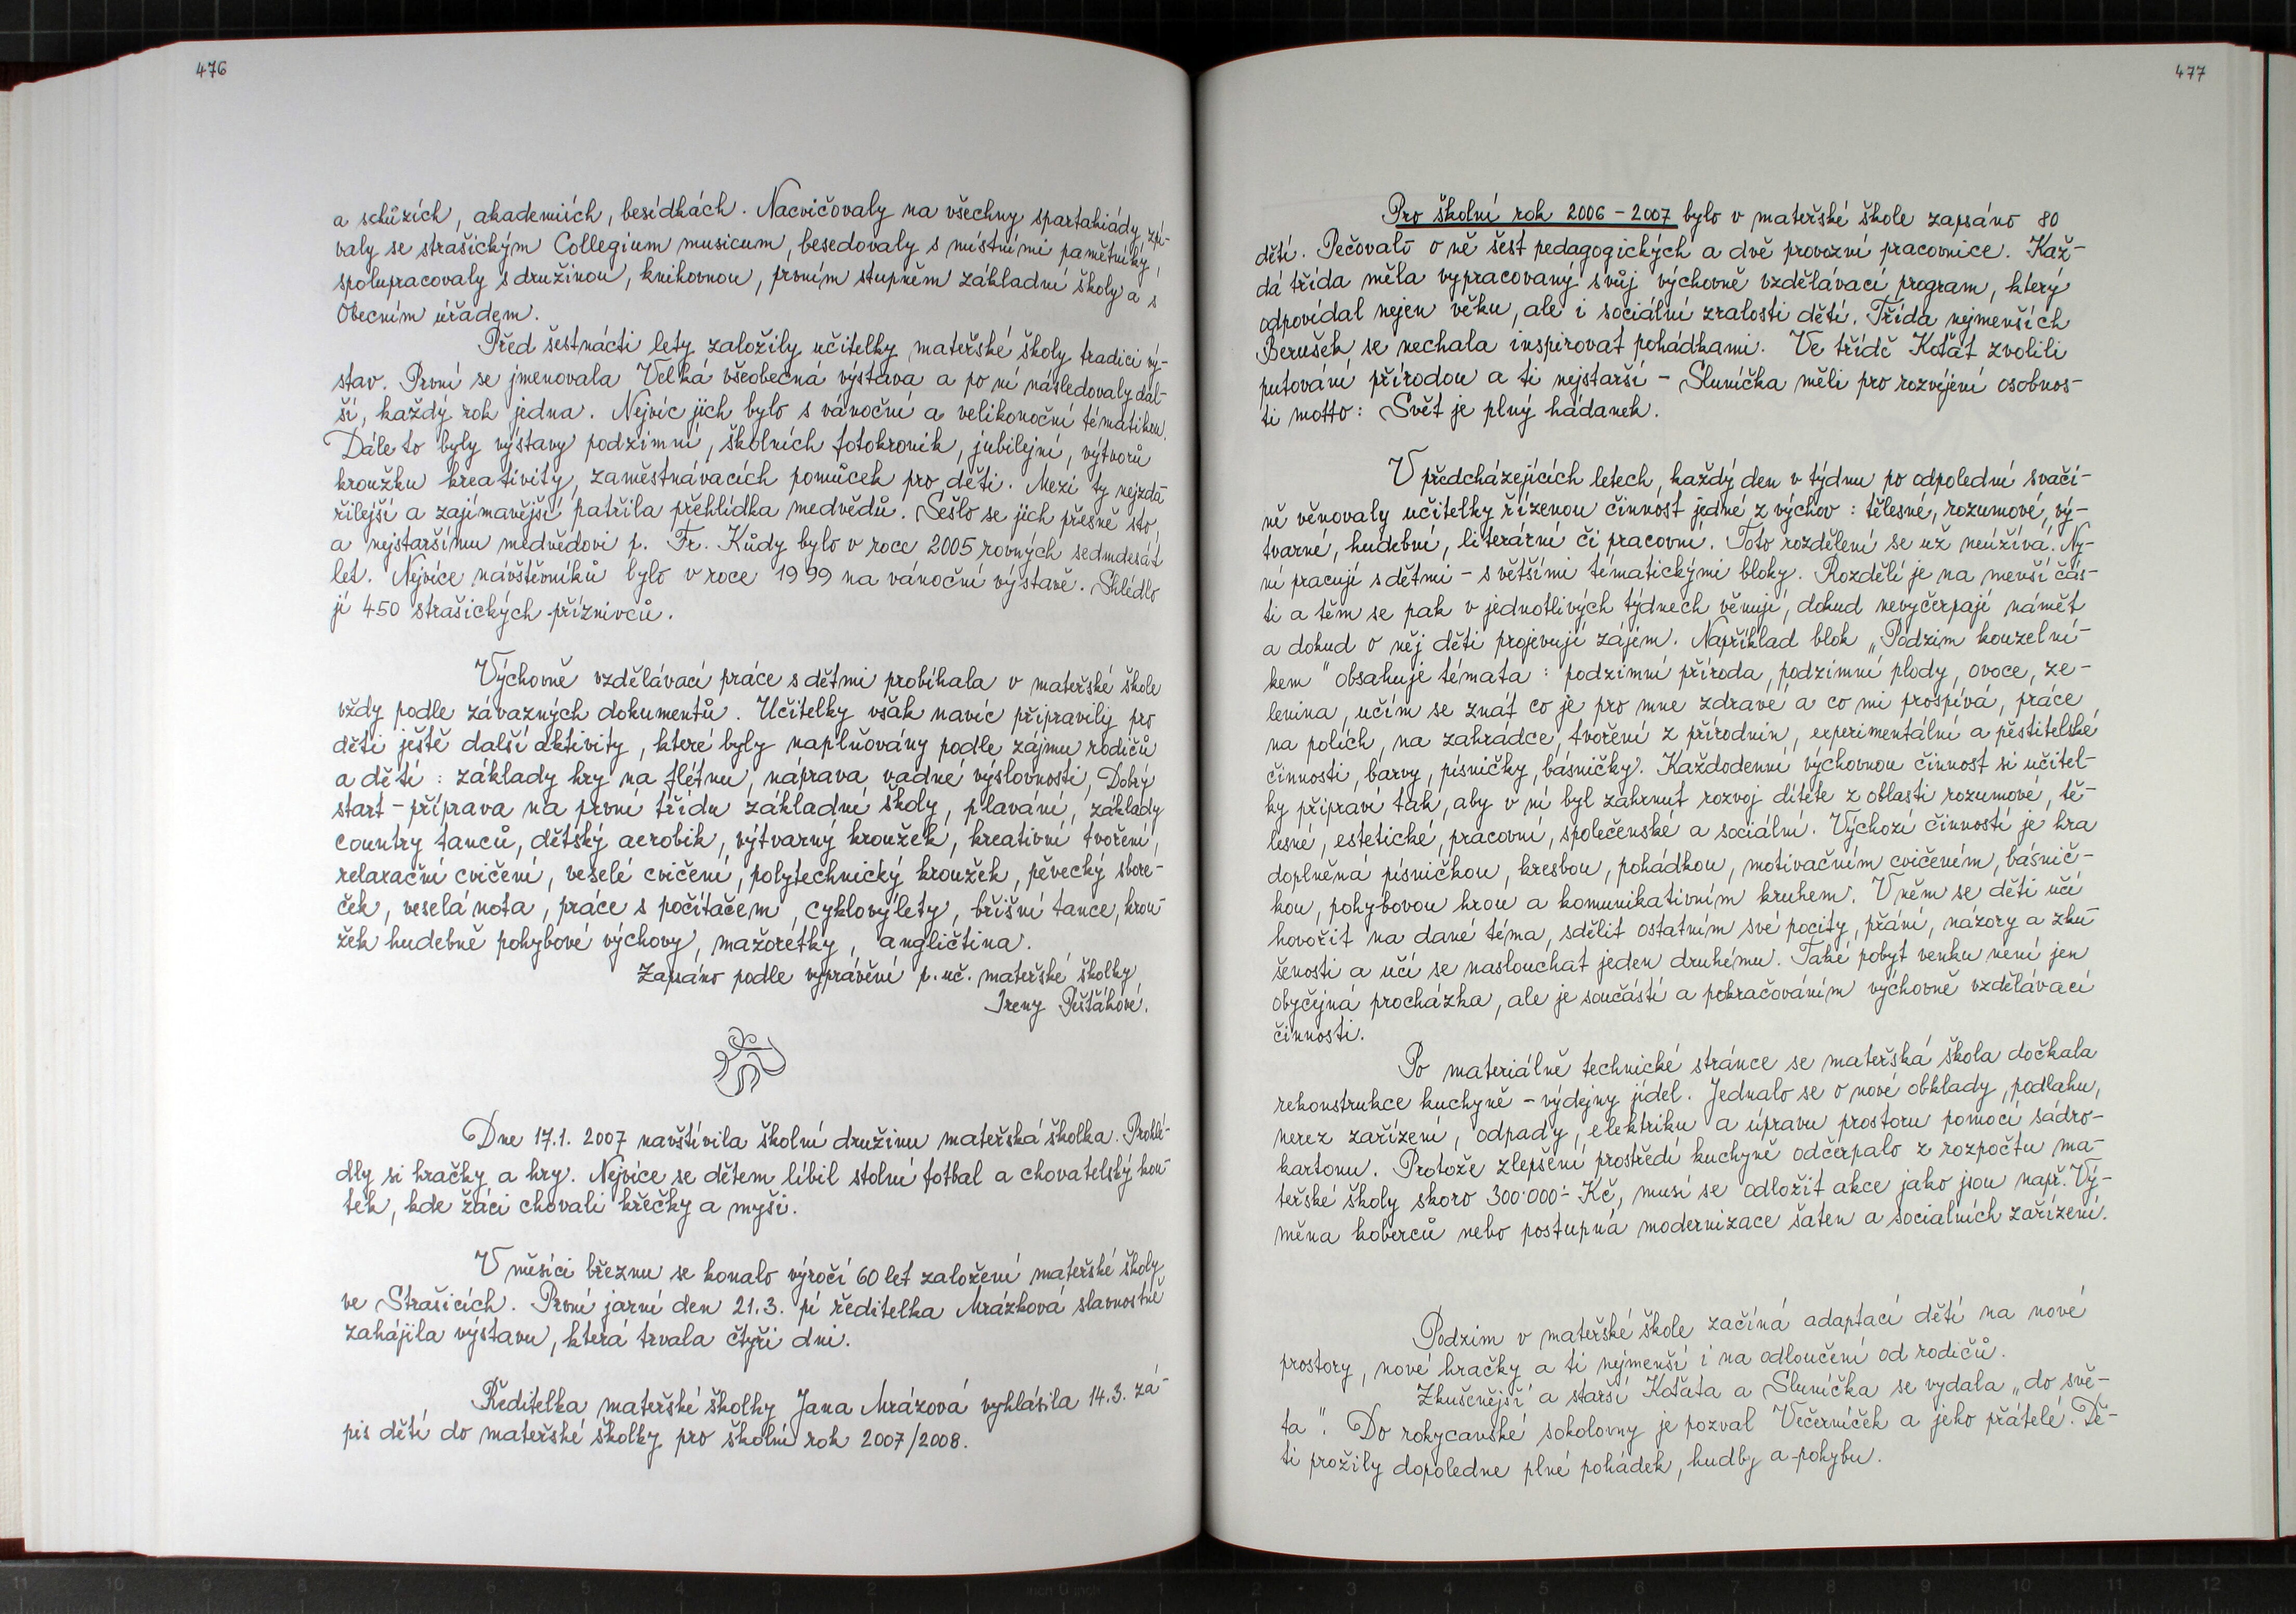 476
a schůzích, akademiích, besídkách. Nacvičovaly na všechny spartakiády, zpí-
valy se strašickým Collegium musicum, besedovaly s místními pamětníky,
spolupracovaly s družinou, knihovnou, prvním stupněm základní školy a s
Obecním úřadem.
Před šestnácti lety založily učitelky mateřské školy tradici vý-
stav. První se jmenovala Velká všeobecná výstava a po ní následovaly dal-
ší, každý rok jedna. Nejvíc jich bylo s vánoční a velikonoční tématikou.
Dále to byly výstavy podzimní, školních fotokronik, jubilejní, výtvorů
kroužku kreativity, zaměstnávacích pomůcek pro děti. Mezi ty nejzda-
řilejší a zajímavější patřila přehlídka medvědů. Sešlo se jich přesně sto,
a nejstaršímu medvědovi p. Fr. Kůdy bylo v roce 2005 rovných sedmdesát
let. Nejvíce návštěvníků bylo v roce 1999 na vánoční výstavě. Shlédlo
ji 450 strašických příznivců.
Výchovně vzdělávací práce s dětmi probíhala v mateřské škole
vždy podle závazných dokumentů. Učitelky však navíc připravily pro
děti ještě další aktivity, které byly naplňovány podle zájmu rodičů
a dětí: základy hry na flétnu, náprava vadné výslovnosti, Dobrý
start - příprava na první třídu základní školy, plavání, základy
country tanců, dětský aerobik, výtvarný kroužek, kreativní tvoření,
relaxační cvičení, veselé cvičení, polytechnický kroužek, pěvecký sbore-
ček, veselá nota, práce s počítačem, cyklovýlety, břišní tance, krou-
žek hudebně pohybové výchovy, mažoretky, angličtina.
Zapsáno podle vyprávění p. uč. mateřské školky
Ireny Pišťákové.
Dne 17.1. 2007 navštívila školní družinu mateřská školka. Prohlé-
dly si hračky a hry. Nejvíce se dětem líbil stolní fotbal a chovatelský kou-
tek, kde žáci chovali křečky a myši.
V měsíci březnu se konalo výročí 60 let založení mateřské školy
ve Strašicích. První jarní den 21.3. pí ředitelka Mrázková slavnostně
zahájila výstavu, která trvala čtyři dni.
Ředitelka mateřské školky Jana Mrázová vyhlásila 14.3. zá-
pis dětí do mateřské školky pro školní rok 2007/2008.
477
Pro školní rok 2006 - 2007 bylo v mateřské škole zapsáno 80
dětí. Pečovalo o ně šest pedagogických a dvě provozní pracovnice. Kaž-
dá třída měla vypracovaný svůj výchovně vzdělávací program, který
odpovídal nejen věku, ale i sociální zralosti dětí. Třída nejmenších
Berušek se nechala inspirovat pohádkami. Ve třídě Koťat zvolili
putování přírodou a ti nejstarší - Sluníčka měli pro rozvíjení osobnos-
ti motto: Svět je plný hádanek.
V předcházejících letech, každý den v týdnu po odpolední svači-
ně věnovaly učitelky řízenou činnost jedné z výchov: tělesné, rozumové, vý-
tvarné, hudební, literární či pracovní. Toto rozdělení se už neužívá. Ny-
ní pracují s dětmi - s většími tématickými bloky. Rozdělí je na menší čás-
ti a těm se pak v jednotlivých týdnech věnují, dokud nevyčerpají námět
a dokud o něj děti projevují zájem. Například blok „Podzim kouzelní-
kem" obsahuje témata: podzimní příroda, podzimní plody, ovoce, ze-
lenina, učím se znát co je pro mne zdravé a co mi prospívá, práce
na polích, na zahrádce, tvoření z přírodnin, experimentální a pěstitelské
činnosti, barvy, písničky, básničky. Každodenní výchovnou činnost si učitel-
ky připraví tak, aby v ní byl zahrnut rozvoj dítěte z oblasti rozumové, tě-
lesné, estetické, pracovní, společenské a sociální. Výchozí činností je hra
doplněná písničkou, kresbou, pohádkou, motivačním cvičením, básnič-
kou, pohybovou hrou a komunikativním kruhem. V něm se děti učí
hovořit na dané téma, sdělit ostatním své pocity, přání, názory a zku-
šenosti a učí se naslouchat jeden druhému. Také pobyt venku není jen
obyčejná procházka, ale je součástí a pokračováním výchovně vzdělávací
činnosti.
Po materiálně technické stránce se mateřská škola dočkala
rekonstrukce kuchyně - výdejny jídel. Jednalo se o nové obklady, podlahu,
nerez zařízení, odpady, elektriku a úpravu prostoru pomocí sádro-
kartonu. Protože zlepšení prostředí kuchyně odčerpalo z rozpočtu ma-
teřské školy skoro 300·000.- Kč, musí se odložit akce jako jsou např. Vý-
měna koberců nebo postupná modernizace šaten a sociálních zařízení.
Podzim v mateřské škole začíná adaptací dětí na nové
prostory, nové hračky a ti nejmenší i na odloučení od rodičů.
Zkušenější a starší Koťata a Sluníčka se vydala „do svě-
ta". Do rokycanské sokolovny je pozval Večerníček a jeho přátelé. Dě-
ti prožily dopoledne plné pohádek, hudby a pohybu.